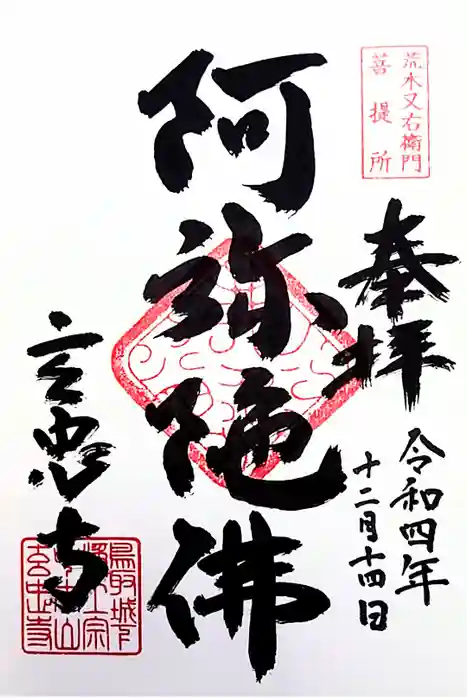 荒木又右衛門
菩提所
奉拝
令和四年
十二月十四日
阿弥陀佛
玄忠寺
鳥取城下
浄土宗
玄忠寺